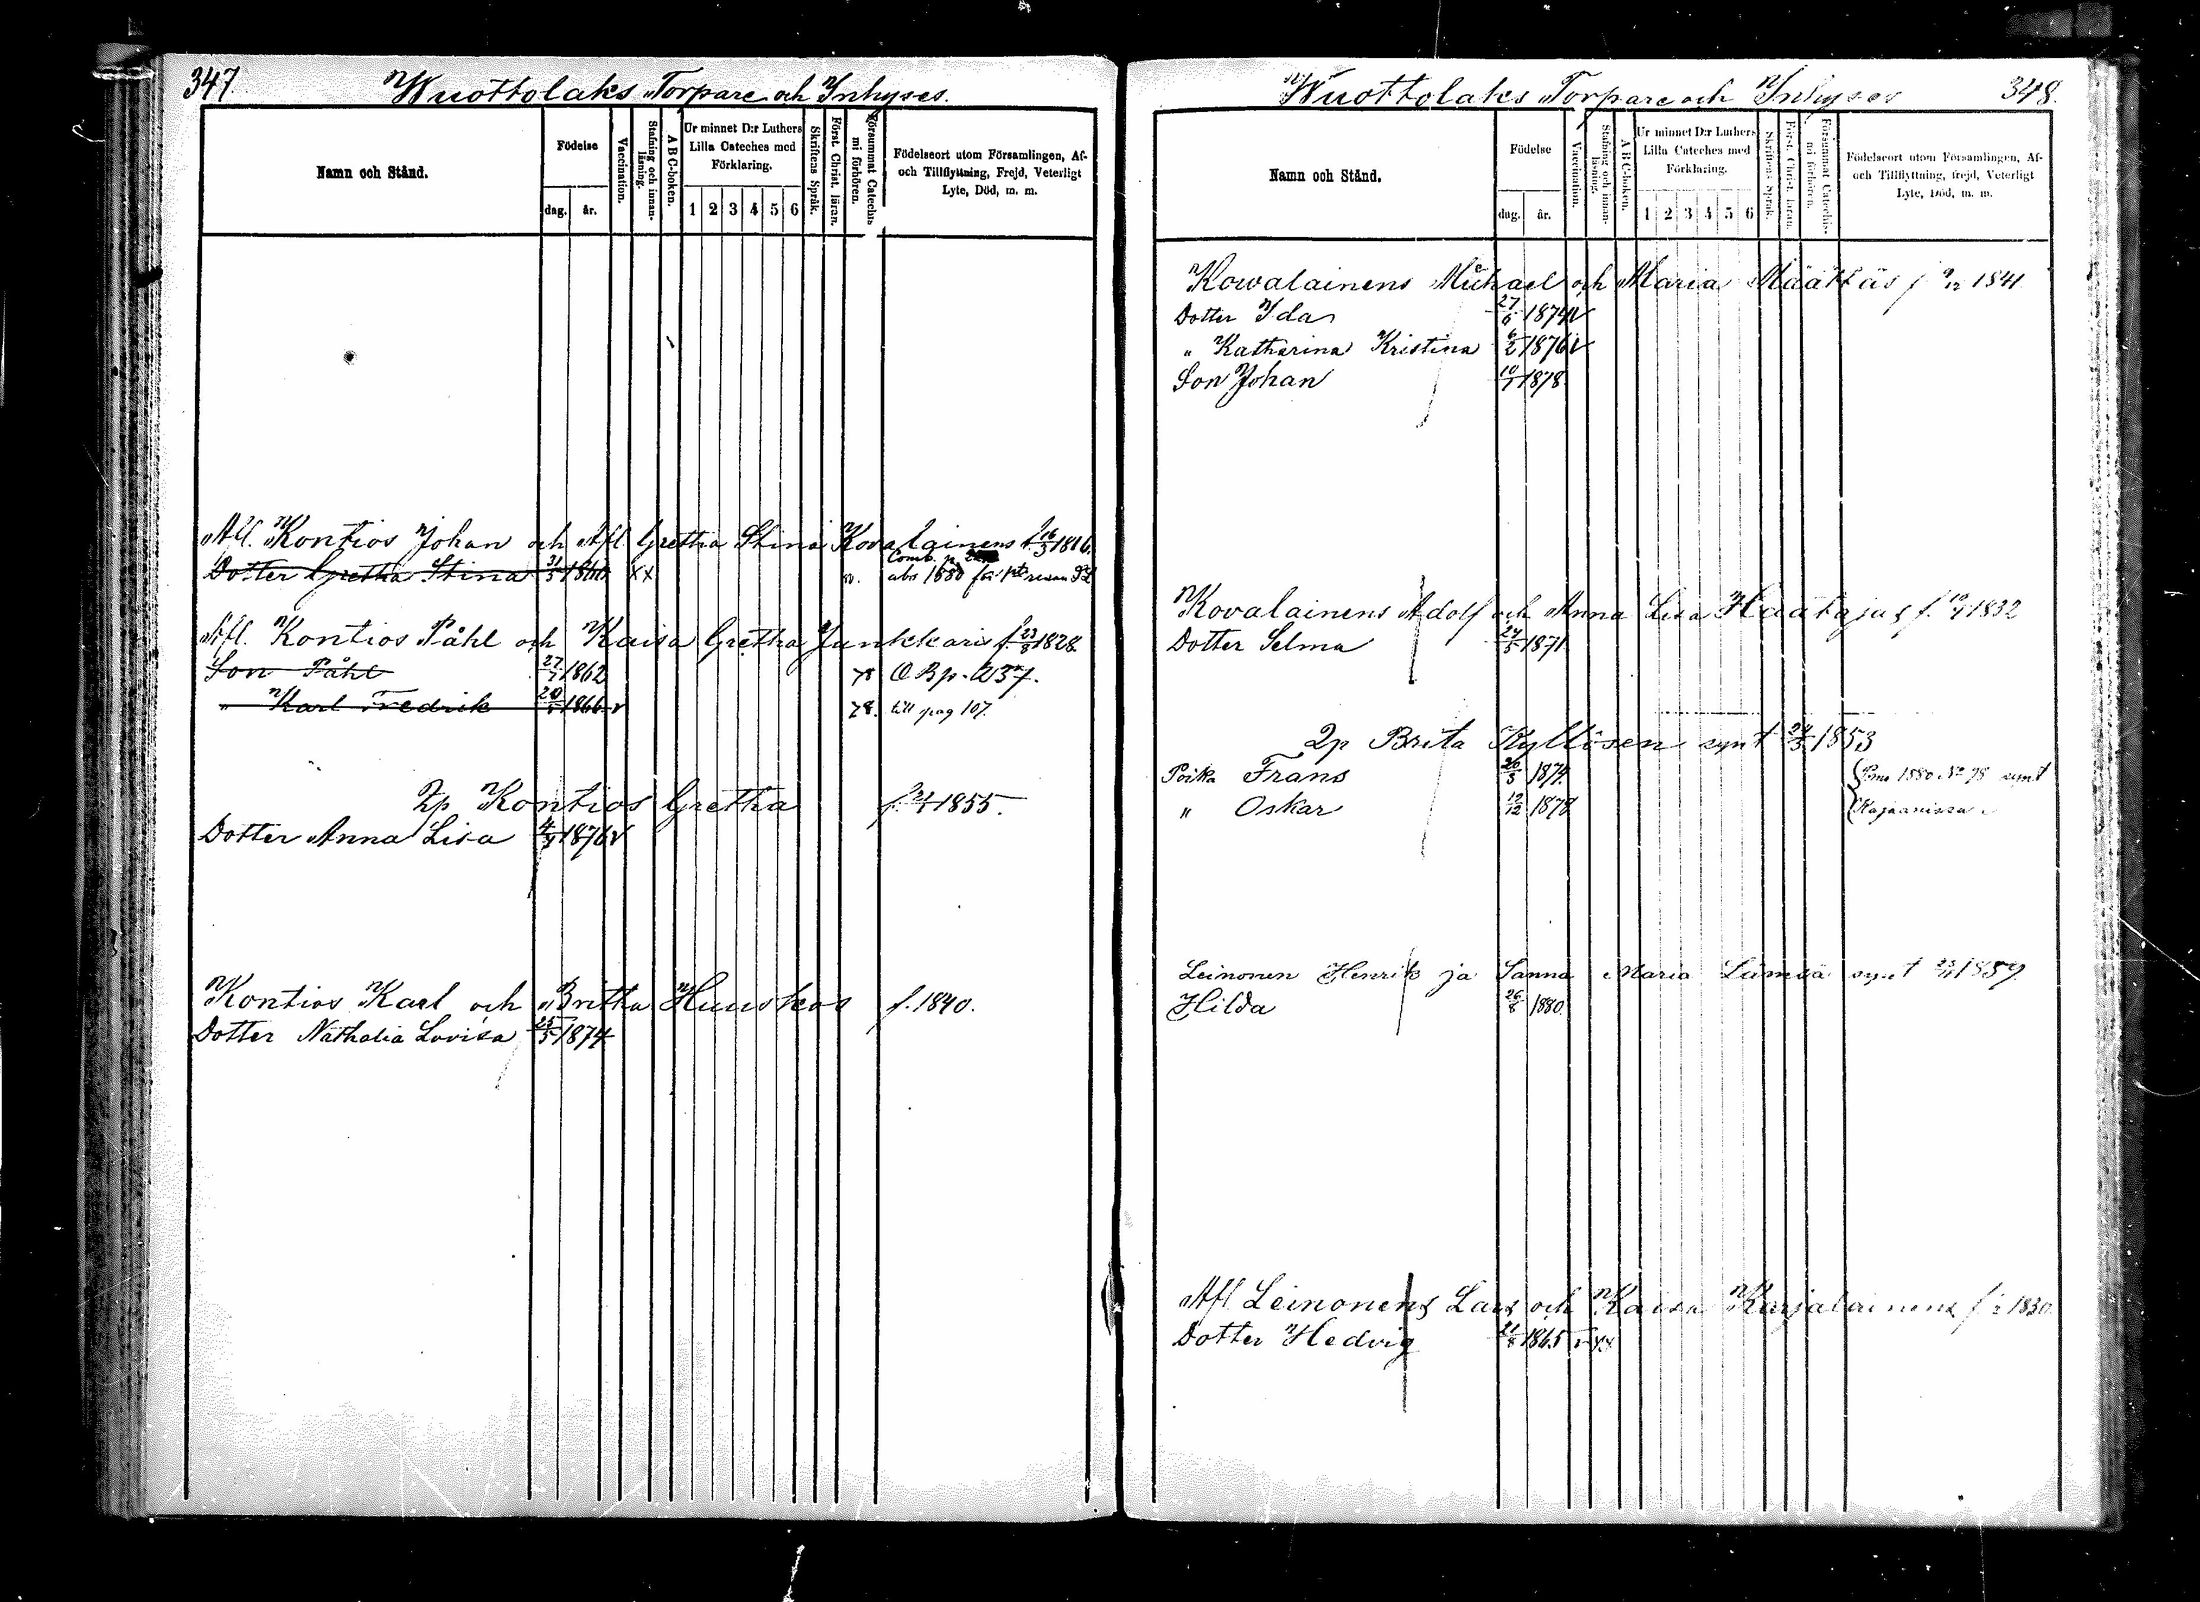 347
Wuottolaks Torpare och Inhyses.
Namn och Stånd.
Födelse
dag. år.
Vaccination.
Stafning och innan-läsning.
ABC-boken.
Ur minnet D:r Luthers
Lilla Cateches med
Förklaring.
1 2 3 4 5 6
Skriftens Språk.
Först. Christ. läran.
Försummat Catechis-
mi förhören.
Födelseort utom Församlingen, Af-
och Tillflyttning, Frejd, Veterligt
Lyte, Död, m. m.
Afl. Kontios Johan och Afl. Gretha Stina Kovalainens f. 16/3 1816.
Dotter Gretha Stina 31/3 1860 xx
abs 1880 för
Afl. Kontios Påhl och Kaisa Gretha Junkkaris f. 23/8 1828
Son Påhl 27/7 1862 78 O.B p.
" Karl Fredrik 1866 v 78. till pag 107.
2p Kontios Gretha 1855.
Dotter Anna Lisa 1876 v
Kontios Karl och Britha Huuskos f. 1840.
Dotter Nathalia Lovisa 25/5 1874
Wuottolaks Torpare och Inhyses
348.
Namn och Stånd.
Födelse
dag. år.
Vaccination.
Stafning och innan-
läsning.
ABC-boken.
Ur minnet D:r Luthers
Lilla Cateches med
Förklaring.
1 2 3 4 5 6
Skriftens Språk.
Först. Christ. läran.
Försummat Catechis-
mi förhören.
Födelseort utom Församlingen, Af-
och Tillflyttning, frejd, Veterligt
Lyte, Död, m. m.
Kowalainens Michael och Maria Määttäs f 9/12 1841
Dotter Ida 27/6 1874 v
" Katharina Kristina 6/2 1876 v
Son Johan 10/1 1878
Kovalainens Adolf och Anna Lisa Haatajas f. 1832
Dotter Selma 24/5 1871
2p Brita Kyllösen synt 1853
Poika Frans 26/3 1874 1880 No 78 synt
" Oskar 12/12 1878 Kajaanissa.
Leinonen Henrik ja Sanna Maria Lämsä synt 1859
Hilda 26/8 1880
Afl Leinonens Lars och Kaisa Karjalainens f 1830.
Dotter Hedvig 1865 v xx